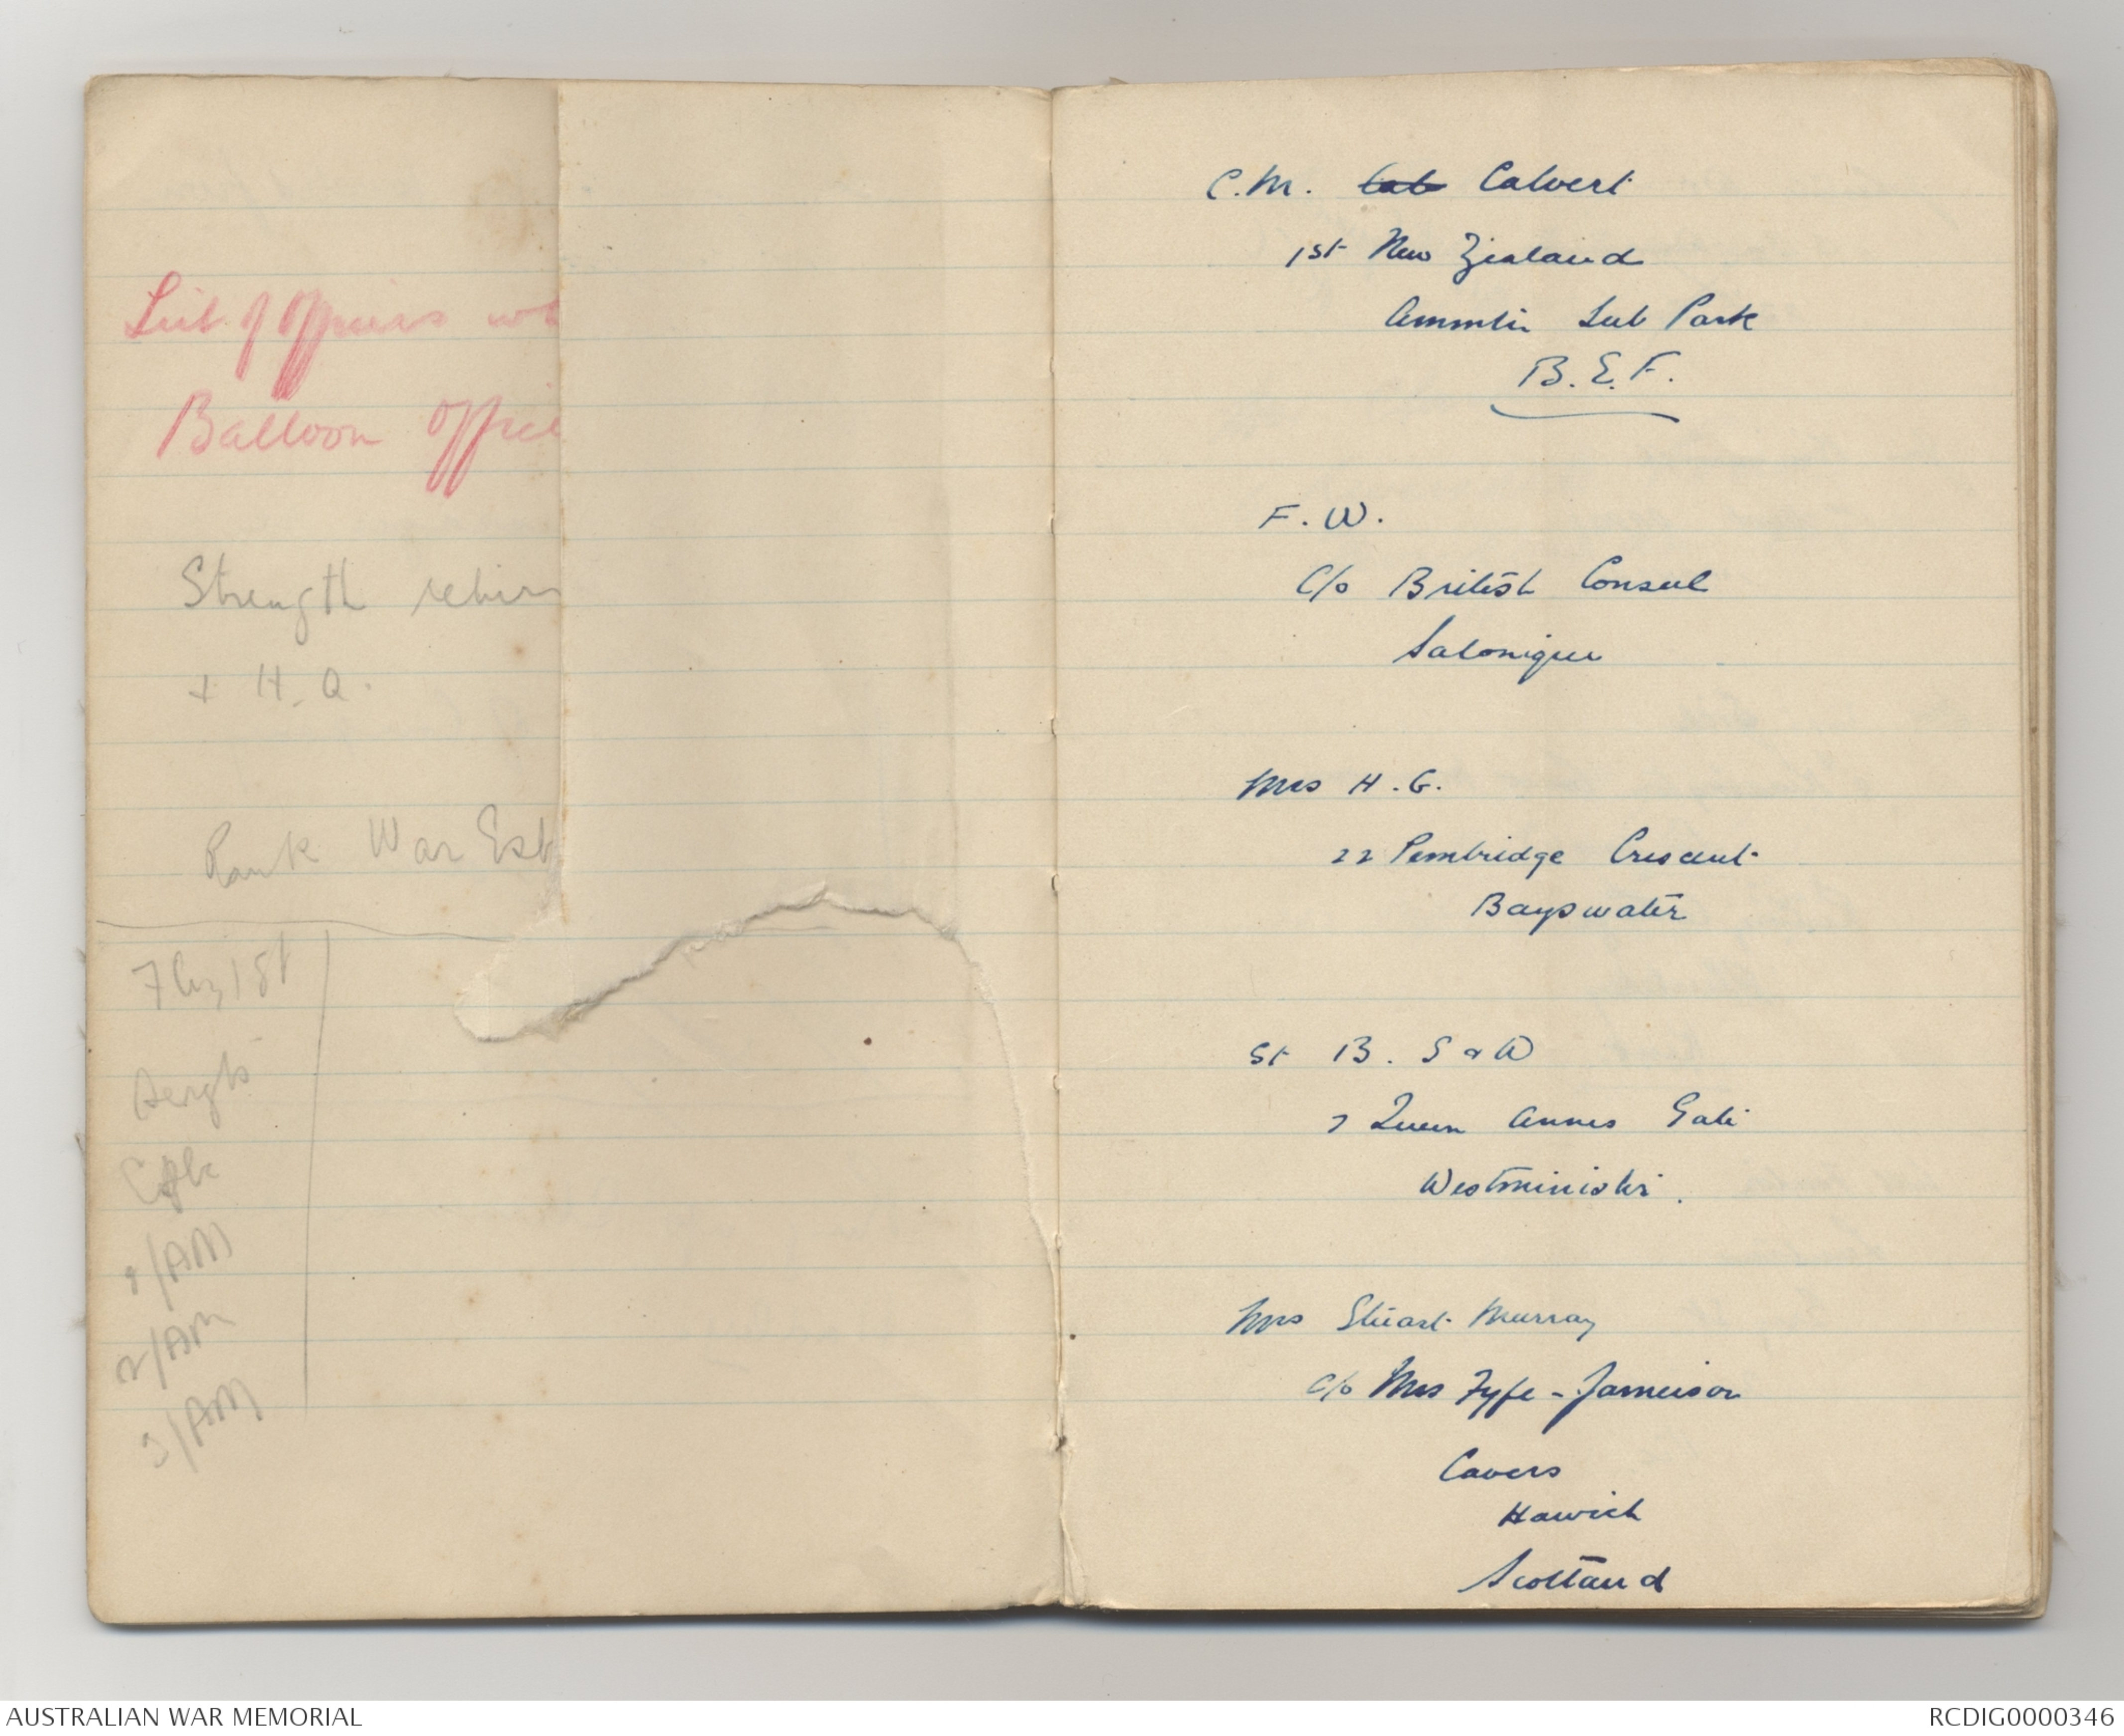 List of Officers wh
Balloon Office
Strength return
+ H.Q.
Rank War Est
F Cy 1st
Sergts
Cpls
1/AM
2/AM
3/AM
C.M. Calvert
1st New Zealand
Ammtn Sub Park
B.E.F.
F. W.
C/o British Consul
Salonique
Mrs H.G.
22 Pembridge Crescent
Bayswater
St B. S & W
7 Queen Annes Gate
Westminister.
Mrs Stuart Murray
C/o Mrs Fyfe-Jameison
Cavers
Hawick
Scotland
AUSTRALIAN WAR MEMORIAL
RCDIG0000346